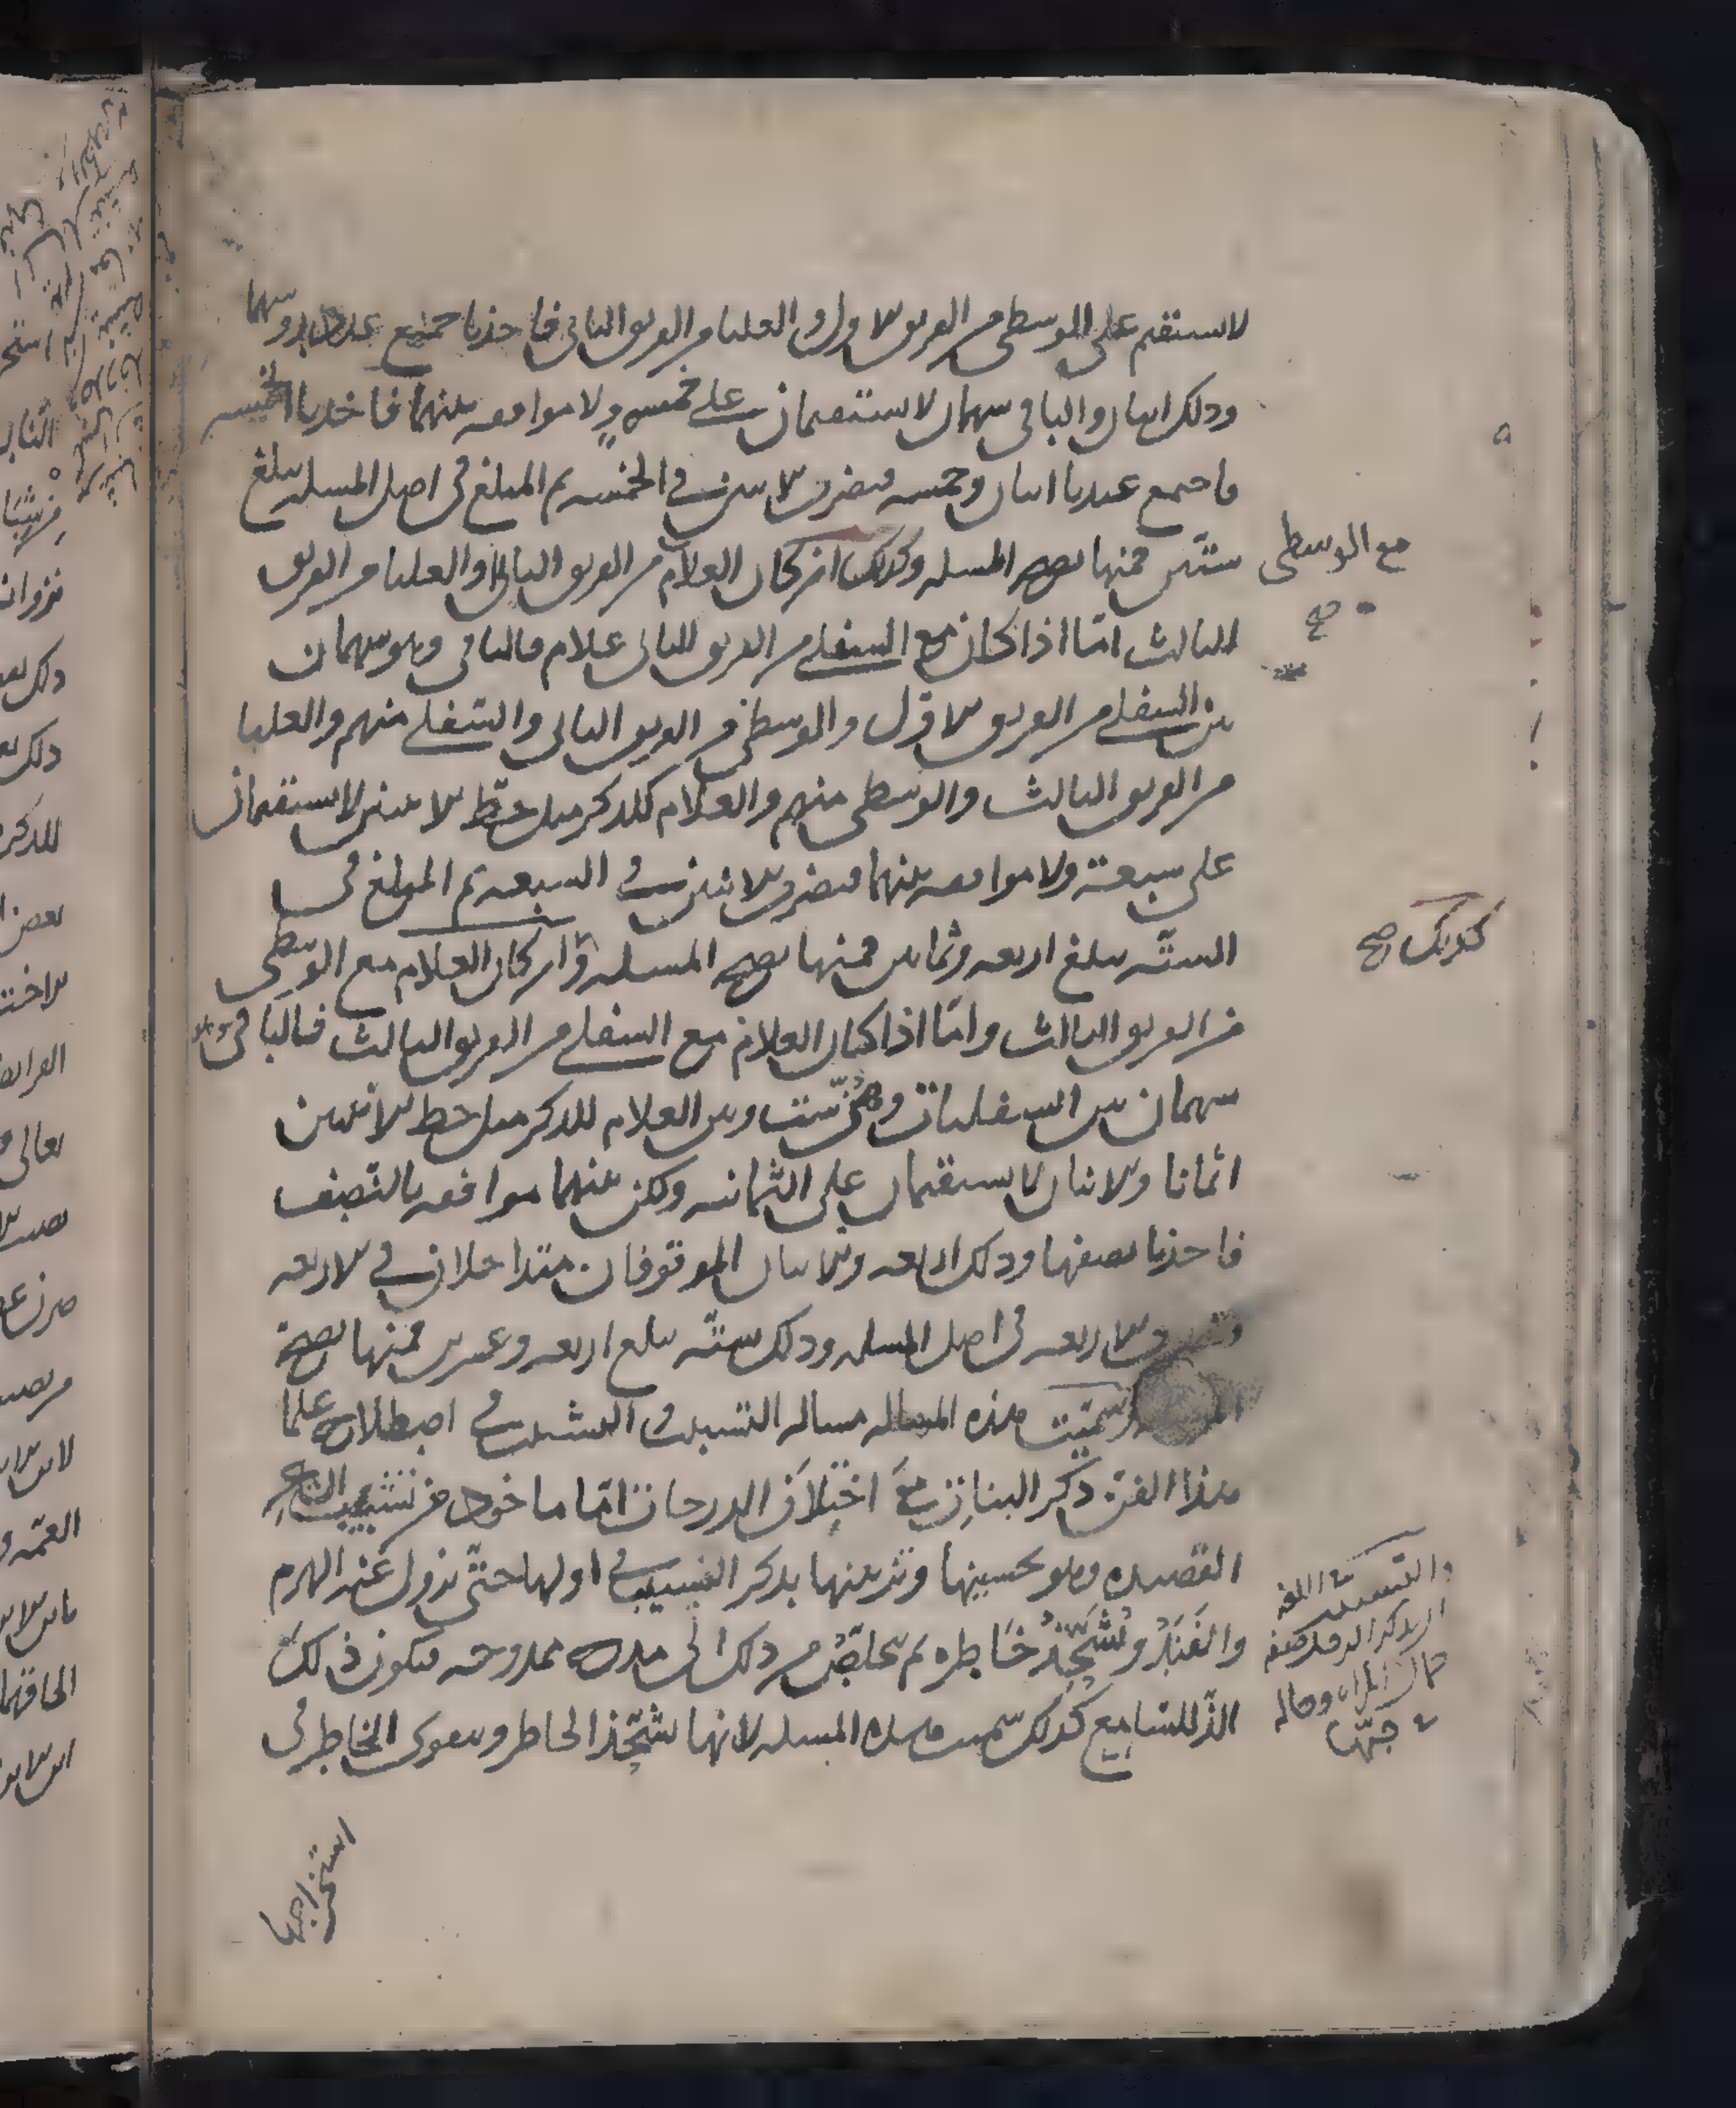 لا يستقيم على الوسطى من الفريق الاول والعليا من الفريق الثاني فاخذنا جميع عدد رؤسهما
وذلك اثنان والباقي سهمان لا يستقيمان على خمسة ولا موافقة بينهما فاخذنا الخمسة
فاجتمع عندنا اثنان وخمسة فيضرب الاثنين في الخمسة ثم المبلغ في اصل المسئلة يبلغ
ستين فمنها تصح المسئلة وكذلك ان كان الغلام من الفريق الثاني او العليا من الفريق
الثالث امّا اذا كان مع السفلى من الفريق الثاني غلام فالباقي وهو سهمان
بين السفلى من الفريق الاول والوسطى من الفريق الثاني والسفلى منهم والعليا
من الفريق الثالث والوسطى منهم والغلام للذكر مثل حظّ الانثيين لا يستقيمان
على سبعة ولا موافقة بينهما فيضرب الاثنين في السبعة ثم المبلغ في
الستّة يبلغ اربعة وثمانين فمنها تصح المسئلة وان كان الغلام مع الوسطى
من الفريق الثالث وامّا اذا كان الغلام مع السفلى من الفريق الثالث فالباقي وهو
سهمان بين السفليات وهنّ ستّ وبين الغلام للذكر مثل حظ الانثيين
اثمانا والاثنان لا يستقيمان على الثمانية ولكن بينهما موافقة بالنّصف
فاخذنا نصفها وذلك اربعة والاثنان الموقوفان متداخلان في الاربعة
وتضرب الاربعة في اصل المسئلة وذلك ستّة يبلغ اربعة وعشرين فمنها تصح
المسئلة وسمّيت هذه المسالة مسالة التشبيب والتشبيب في اصطلاح علما
هذا الفن ذكر البنات مع اختلاف الدرجات امّا ماخوذ من تشبيب الشاعر
القصيدة وهو تحسينها وتزيينها بذكر النسيب في اولها حتّى يزول عنه الهرم
والفَنَدُ ويُشَحِّذُ خَاطِره ثم يتخلّصُ من ذلك الى مدح ممدوحه فيكون ذلك
الذّ للسّامع كذلك سميت هذه المسئلة لانها تشحّذ الخاطر ويقوى الخاطر في
استخراجها
مع الوسطى
صح
كذلك صح
والتشبيب في اللغة